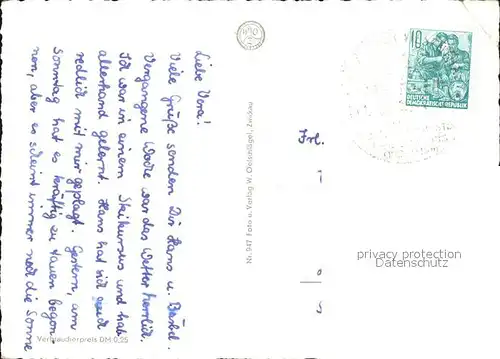 Liebe Vera!
Viele Grüße senden Dir Hans u. Bärbel.
Vergangene Woche war das Wetter herrlich.
Ich war in einem Skikursus und hab
allerhand gelernt. Hans hat sich auch
redlich mit mir geplagt. Gestern, am
Sonntag hat es kräftig zu tauen begon
nen, aber es scheint immer noch die Sonne
Verbraucherpreis DM 0,25
Nr. 947 Foto u. Verlag W. Oelschlägel, Zwickau
10
DEUTSCHE
DEMOKRATISCHE REPUBLIK
Frl.
privacy protection
Datenschutz